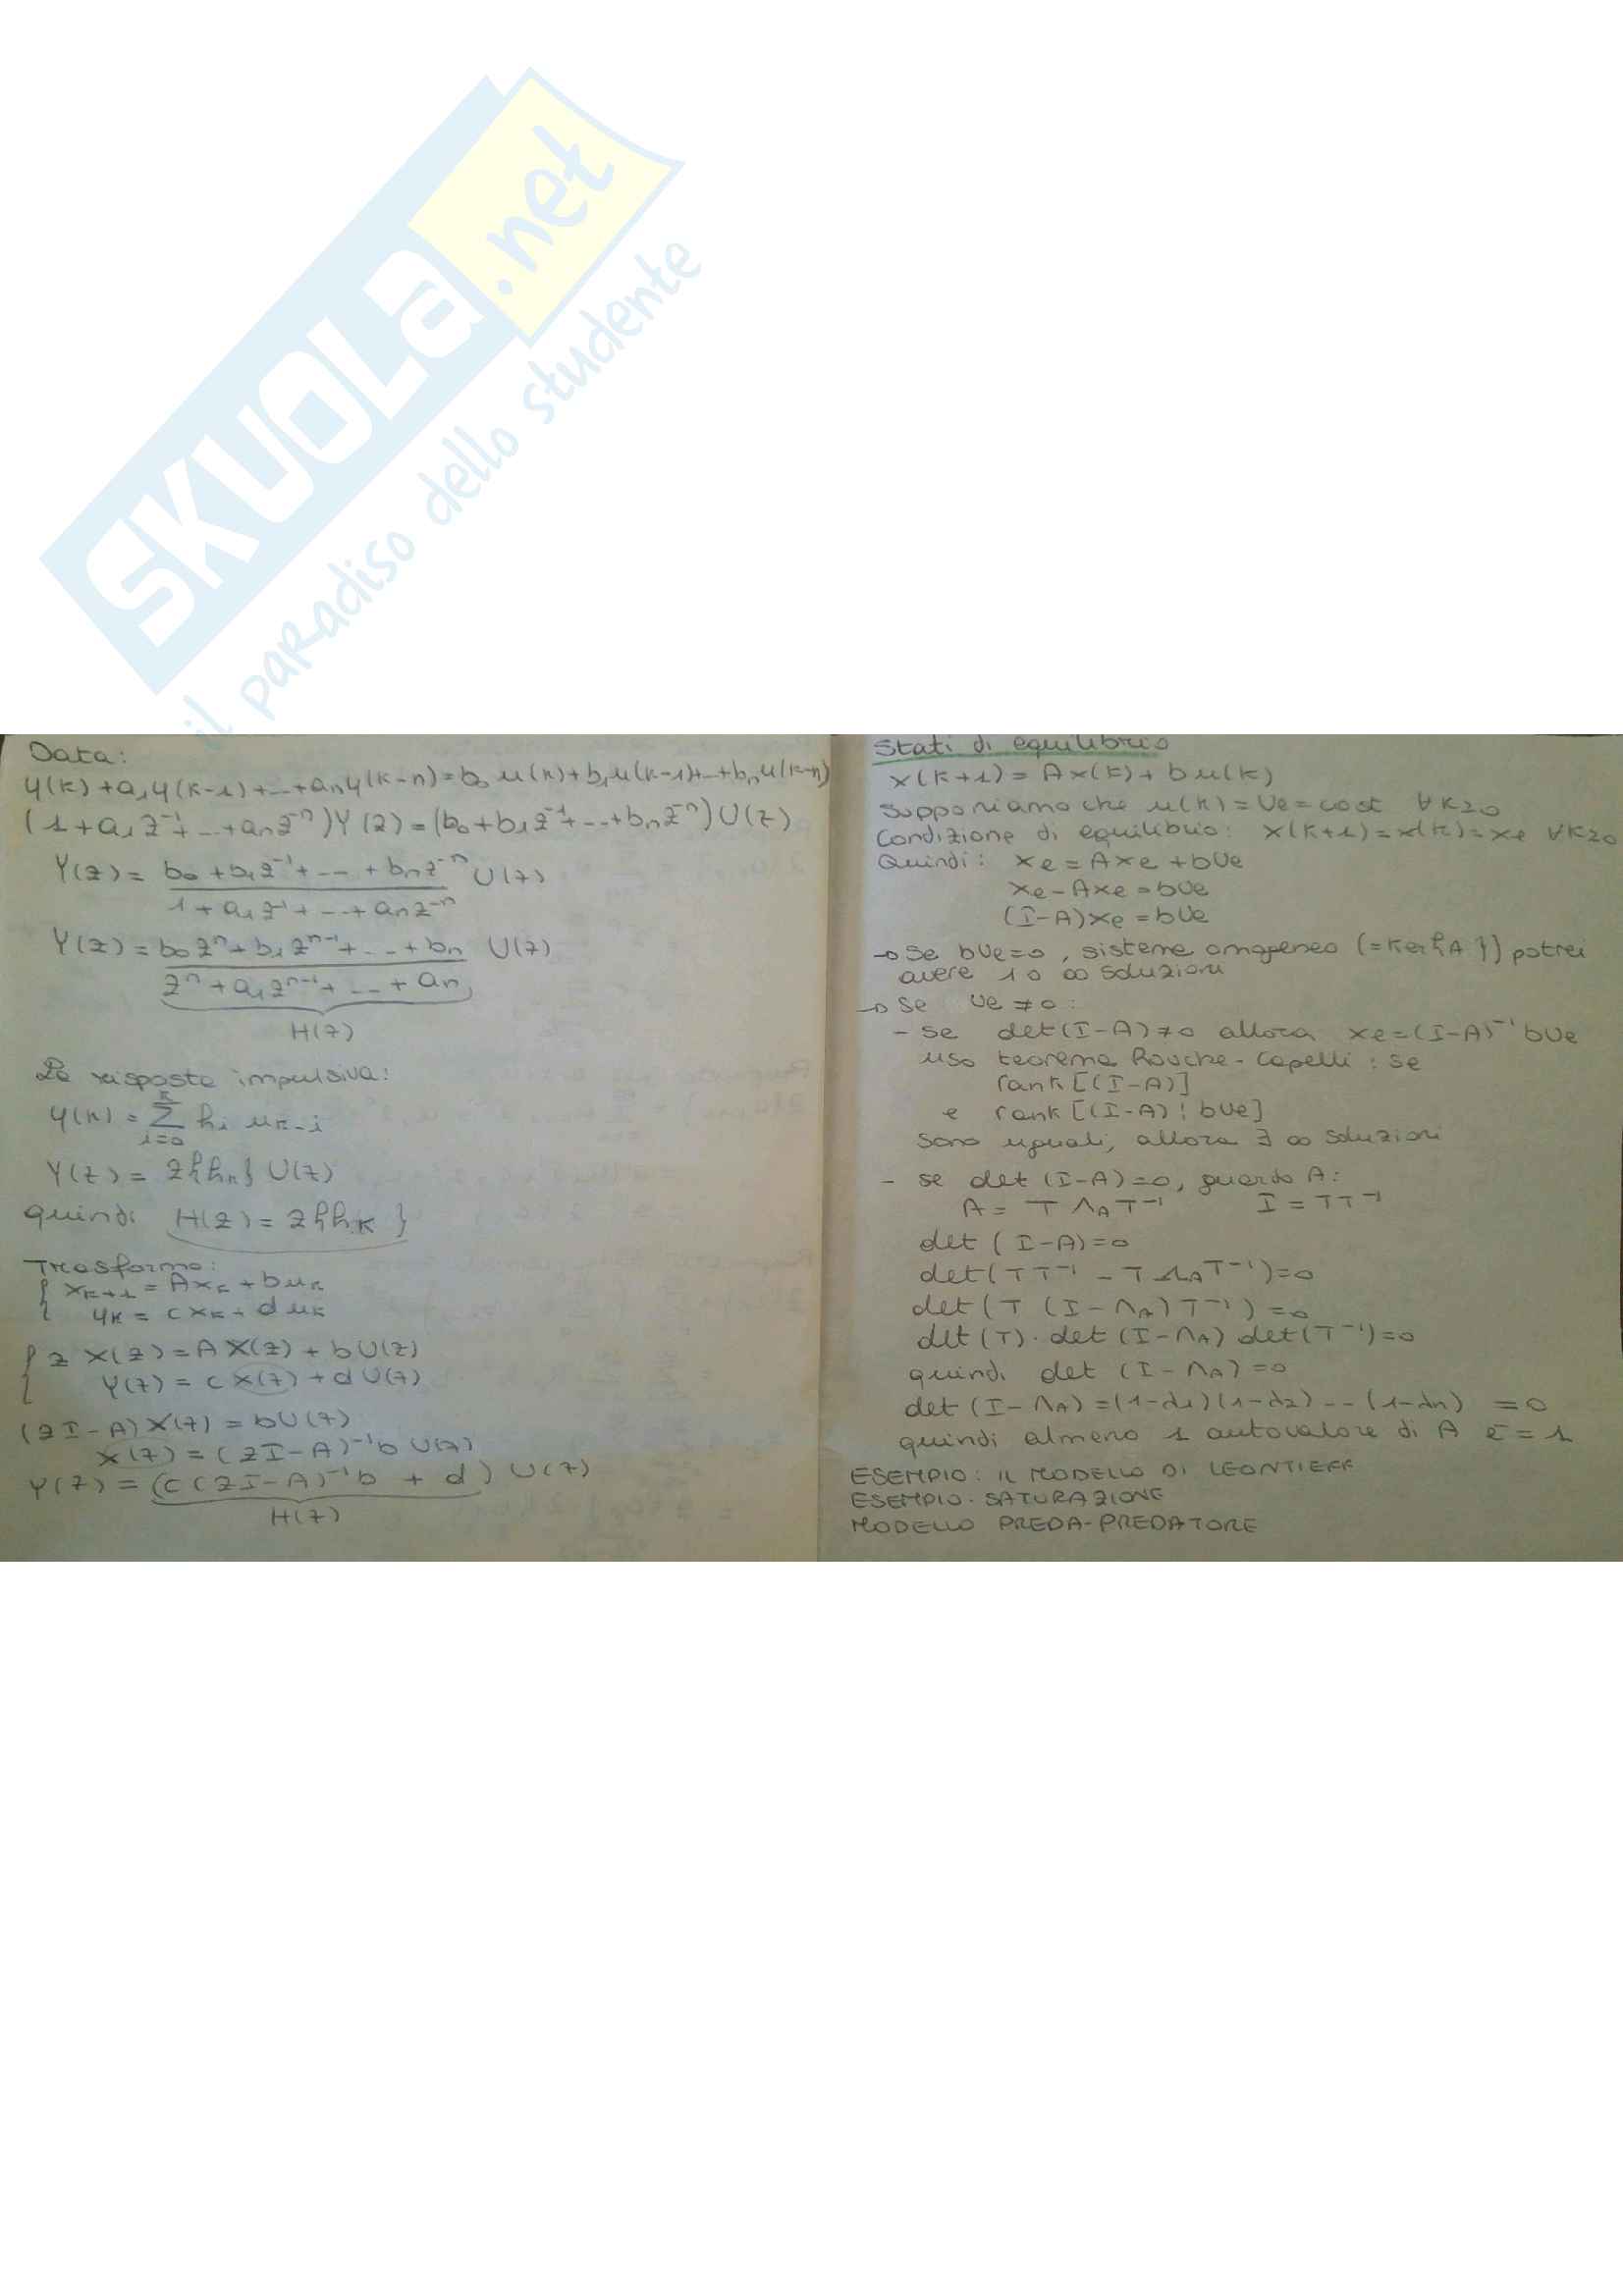 SKUOLA.net
il paradiso dello studente
Data:
y(k)+a₁y(k-1)+...+aₙy(k-n)=b₀ u(k)+b₁u(k-1)+...+bₙu(k-n)
(1+a₁z⁻¹+...+aₙz⁻ⁿ)Y(z)=(b₀+b₁z⁻¹+...+bₙz⁻ⁿ)U(z)
Y(z)= b₀+b₁z⁻¹+...+bₙz⁻ⁿ U(z)
1+a₁z⁻¹+...+aₙz⁻ⁿ
Y(z)= b₀zⁿ+b₁zⁿ⁻¹+...+bₙ U(z)
zⁿ+a₁zⁿ⁻¹+...+aₙ
H(z)
La risposta impulsiva:
y(k)= Σ hᵢ uₖ₋ᵢ
k
i=0
Y(z)= Z{hₖ} U(z)
quindi H(z)=Z{hₖ}
Trasformo:
{ xₖ₊₁=Axₖ+buₖ
yₖ=cxₖ+duₖ
{ z X(z)=A X(z)+bU(z)
Y(z)=c X(z)+dU(z)
(zI-A)X(z)=bU(z)
X(z)=(zI-A)⁻¹b U(z)
Y(z)=(c(zI-A)⁻¹b + d) U(z)
H(z)
Stati di equilibrio
x(k+1)=Ax(k)+bu(k)
Supponiamo che u(k)=Ue=cost ∀k≥0
Condizione di equilibrio: x(k+1)=x(k)=xe ∀k≥0
Quindi: xe=Axe+bUe
xe-Axe=bUe
(I-A)xe=bUe
→ Se bUe=0, sistema omogeneo (=Ker{A}) potrei
avere 1 o ∞ soluzioni
→ Se Ue≠0:
- se det(I-A)≠0 allora xe=(I-A)⁻¹bUe
uso teorema Rouche-Capelli: se
rank[(I-A)]
e rank[(I-A)¦bUe]
sono uguali, allora ∃ ∞ soluzioni
- se det(I-A)=0, guardo A:
A= T Λ_A T⁻¹ I=TT⁻¹
det(I-A)=0
det(TT⁻¹-TΛ_AT⁻¹)=0
det(T(I-Λ_A)T⁻¹)=0
det(T)·det(I-Λ_A)det(T⁻¹)=0
quindi det(I-Λ_A)=0
det(I-Λ_A)=(1-λ₁)(1-λ₂)...(1-λₙ) =0
quindi almeno 1 autovalore di A è=1
ESEMPIO: IL MODELLO DI LEONTIEFF
ESEMPIO: SATURAZIONE
MODELLO PREDA-PREDATORE